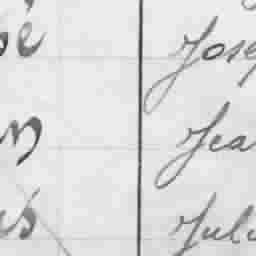 é Jose
n Jea
s Jul